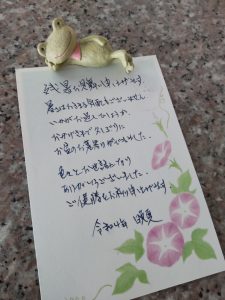 残暑お見舞い申し上げます
暑さはおさまる気配もございません
いかがお過ごしでしょうか
おかげさまで久しぶりに
お盆の
色々とお世話になり
ありがとうございました
ご健勝をお祈り申し上げます
令和 年 晩夏